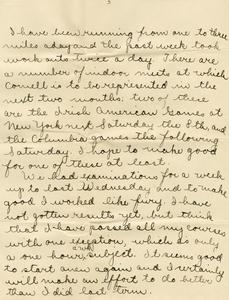 3
I have been running from one to three
miles a day and the past week took
work outs twice a day. There are
a number of indoor meets at which
Cornell is to be represented in the
next two months: two of these
are the Irish American Games at
New York next Saturday the 8th, and
the Columbia games the following
Saturday. I hope to make good
for one of these at least.
We had examinations for a week
up to last Wednesday and to make
good I worked like fury. I have
not gotten results yet, but think
that I have passed all my courses
with one exception, which is only
a one hour subject. It seems good
to start anew again and I certainly
will make an effort to do better
than I did last term.